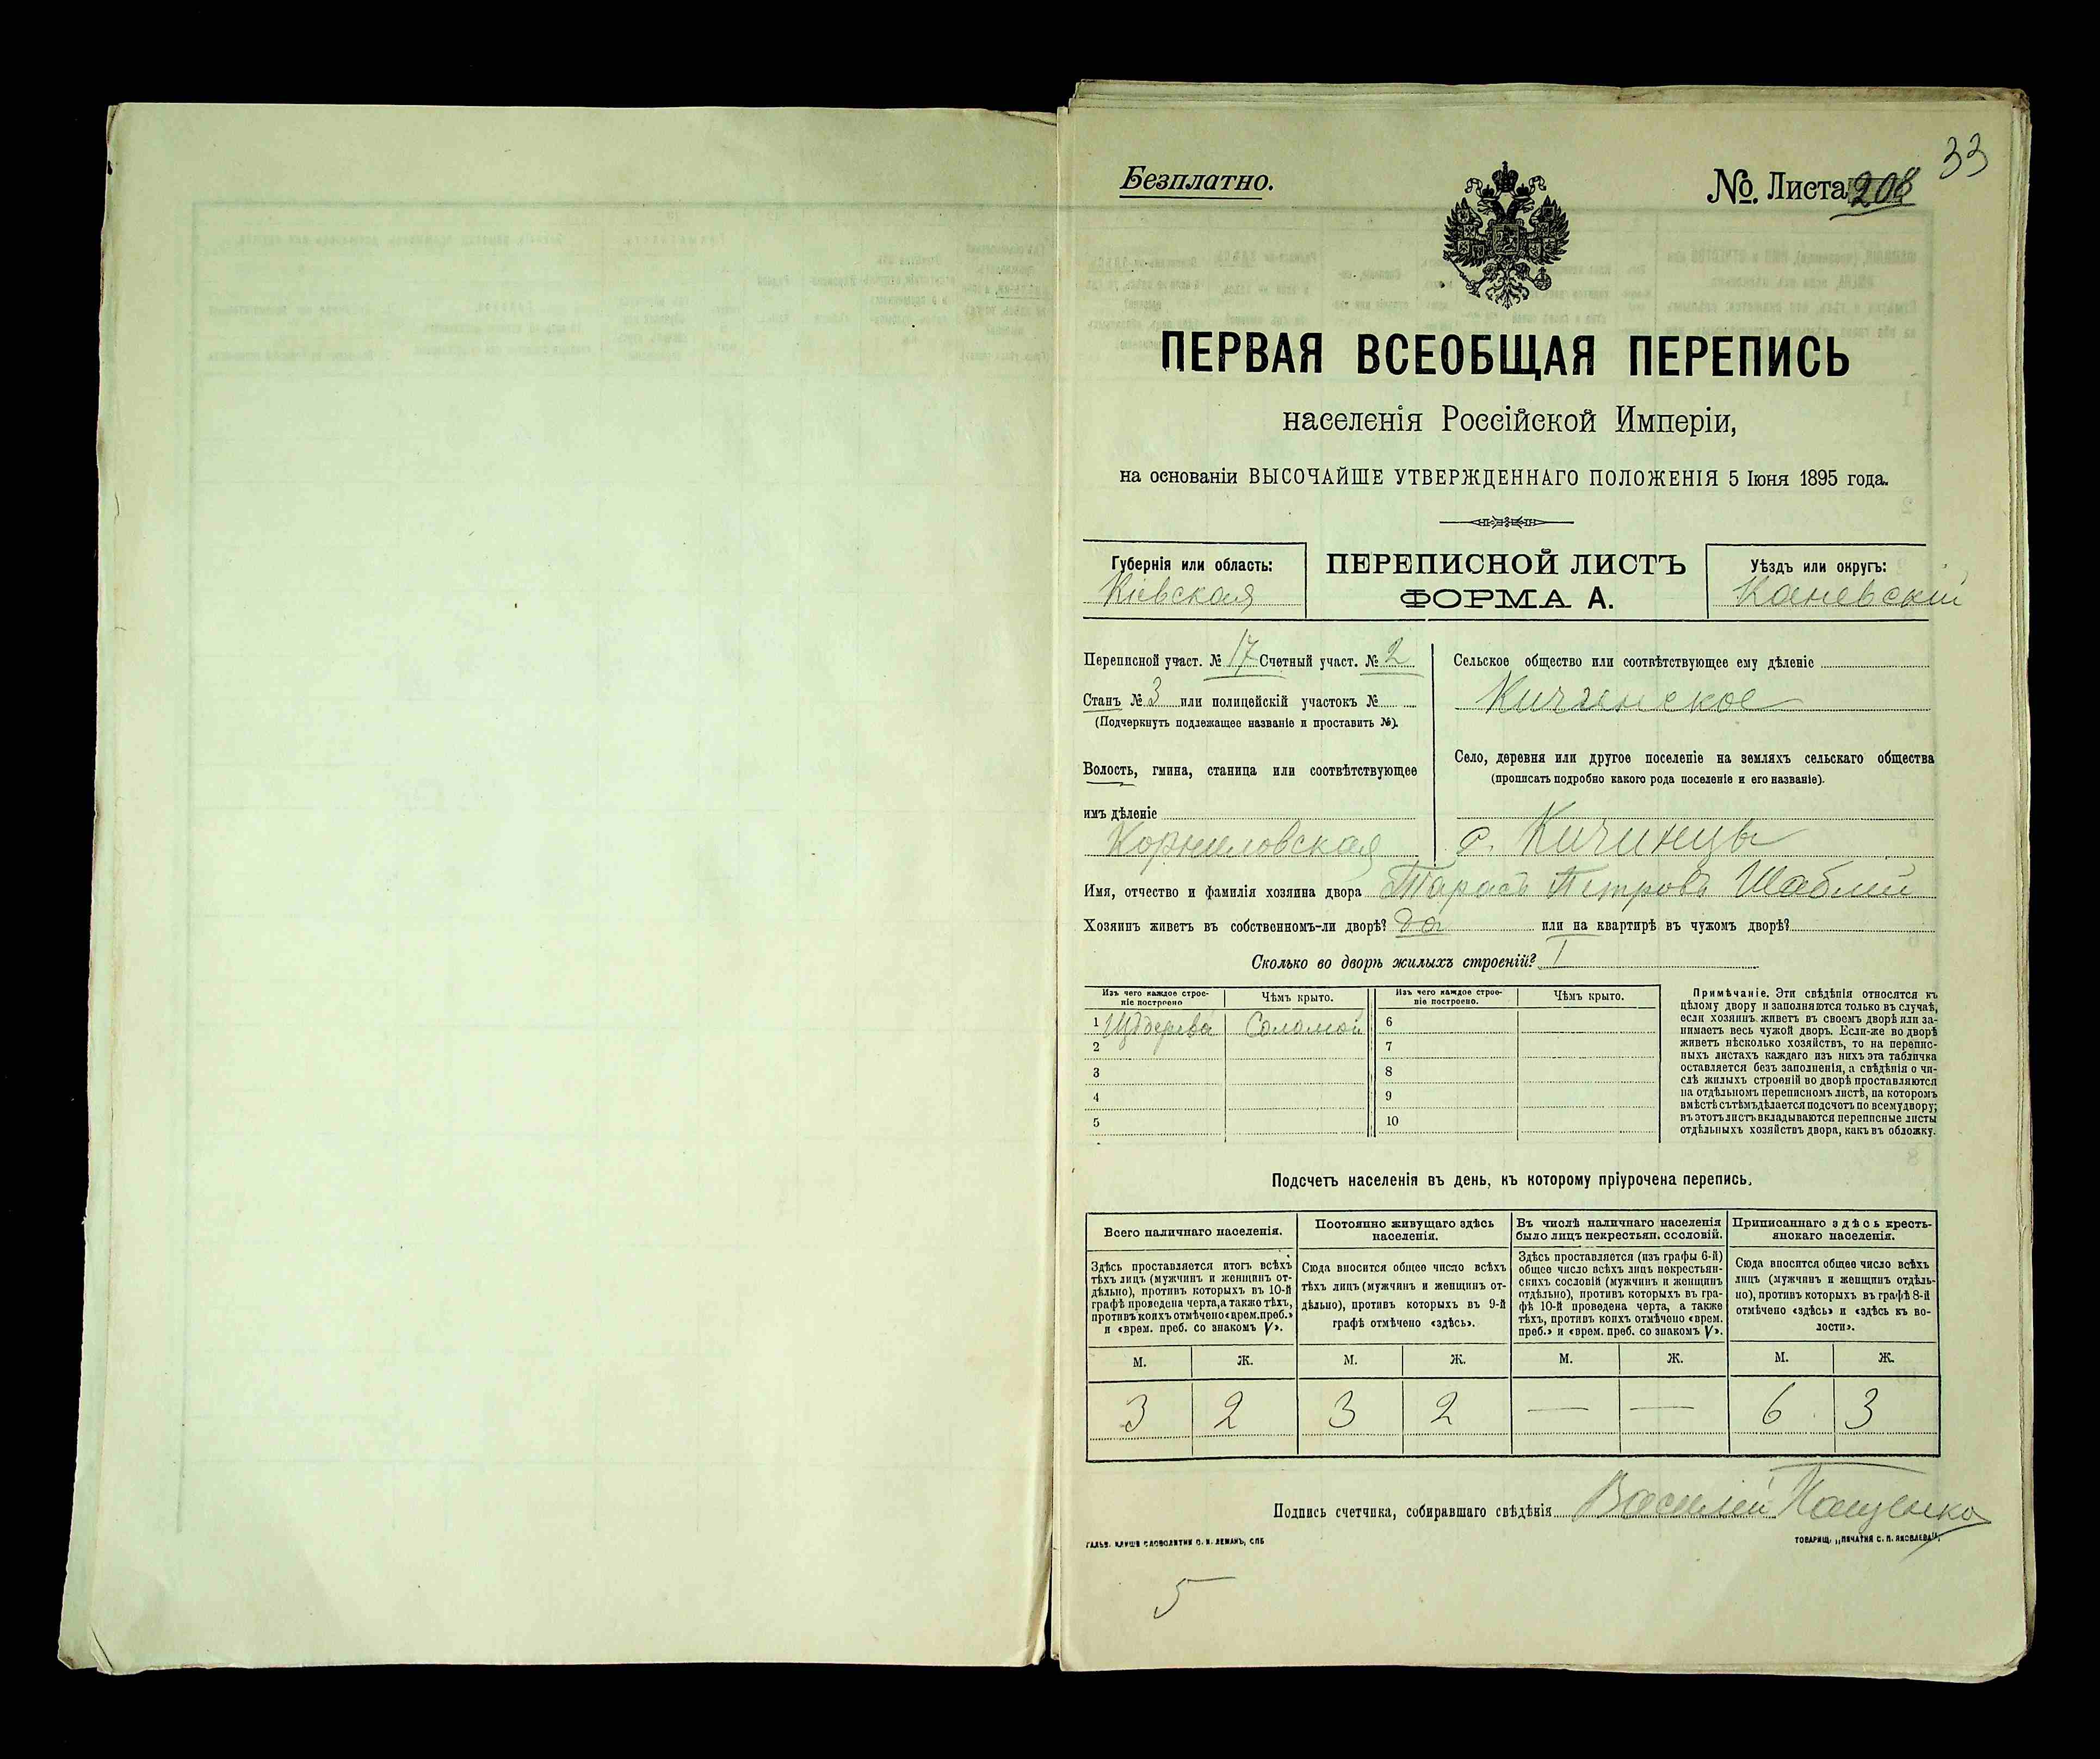 33
Безплатно.
№ Листа 208
ПЕРВАЯ ВСЕОБЩАЯ ПЕРЕПИСЬ
населенія Россійской Имперіи,
на основаніи ВЫСОЧАЙШЕ УТВЕРЖДЕННАГО ПОЛОЖЕНІЯ 5 Іюня 1895 года.
Губернія или область:
Кіевская
ПЕРЕПИСНОЙ ЛИСТЪ
ФОРМА А.
Уѣздъ или округъ:
Каневскій
Переписной участ. № 17 Счетный участ. № 2
Станъ № 3 или полицейскій участокъ №
(Подчеркнуть подлежащее названіе и проставить №).
Волость, гмина, станица или соотвѣтствующее
имъ дѣленіе
Корниловская
Сельское общество или соотвѣтствующее ему дѣленіе
Кичинское
Село, деревня или другое поселеніе на земляхъ сельскаго общества
(прописать подробно какого рода поселеніе и его названіе).
с. Кичинцы
Имя, отчество и фамилія хозяина двора Тарасъ Петровъ Шаблій
Хозяинъ живетъ въ собственномъ-ли дворѣ? да или на квартирѣ въ чужомъ дворѣ?
Сколько во дворѣ жилыхъ строеній? I
Изъ чего каждое строеніе построено
Чѣмъ крыто.
Изъ чего каждое строеніе построено.
Чѣмъ крыто.
1 Изъ дерева Соломой
2
3
4
5
6
7
8
9
10
Примѣчаніе. Эти свѣдѣнія относятся къ
цѣлому двору и заполняются только въ случаѣ,
если хозяинъ живетъ въ своемъ дворѣ или за-
нимаетъ весь чужой дворъ. Если-же во дворѣ
живетъ нѣсколько хозяйствъ, то на перепис-
ныхъ листахъ каждаго изъ нихъ эта табличка
оставляется безъ заполненія, а свѣдѣнія о чи-
слѣ жилыхъ строеній во дворѣ проставляются
на отдѣльномъ переписномъ листѣ, на которомъ
вмѣстѣ съ тѣмъ дѣлается подсчетъ по всему двору;
въ этотъ листъ вкладываются переписные листы
отдѣльныхъ хозяйствъ двора, какъ въ обложку.
Подсчетъ населенія въ день, къ которому пріурочена перепись.
Всего наличнаго населенія.
Здѣсь проставляется итогъ всѣхъ
тѣхъ лицъ (мужчинъ и женщинъ от-
дѣльно), противъ которыхъ въ 10-й
графѣ проведена черта, а также тѣхъ,
противъ коихъ отмѣчено «врем. преб.»
и «врем. преб. со знакомъ V».
Постоянно живущаго здѣсь
населенія.
Сюда вносится общее число всѣхъ
тѣхъ лицъ (мужчинъ и женщинъ от-
дѣльно), противъ которыхъ въ 9-й
графѣ отмѣчено «здѣсь».
Въ числѣ наличнаго населенія
было лицъ некрестьян. сословій.
Здѣсь проставляется (изъ графы 6-й)
общее число всѣхъ лицъ некрестьян-
скихъ сословій (мужчинъ и женщинъ
отдѣльно), противъ которыхъ въ гра-
фѣ 10-й проведена черта, а также
тѣхъ, противъ коихъ отмѣчено «врем.
преб.» и «врем. преб. со знакомъ V».
Приписаннаго здѣсь кресть-
янскаго населенія.
Сюда вносится общее число всѣхъ
лицъ (мужчинъ и женщинъ отдѣль-
но), противъ которыхъ въ графѣ 8-й
отмѣчено «здѣсь» и «здѣсь къ во-
лости».
М. Ж. М. Ж. М. Ж. М. Ж.
3 2 3 2 — — 6 3
Подпись счетчика, собиравшаго свѣдѣнія Василій Пащенко
ГАЛЬВ. КЛИШЕ СЛОВОЛИТНИ О. И. ЛЕМАНЪ, СПБ
ТОВАРИЩ. „ПЕЧАТНЯ С. П. ЯКОВЛЕВА".
5